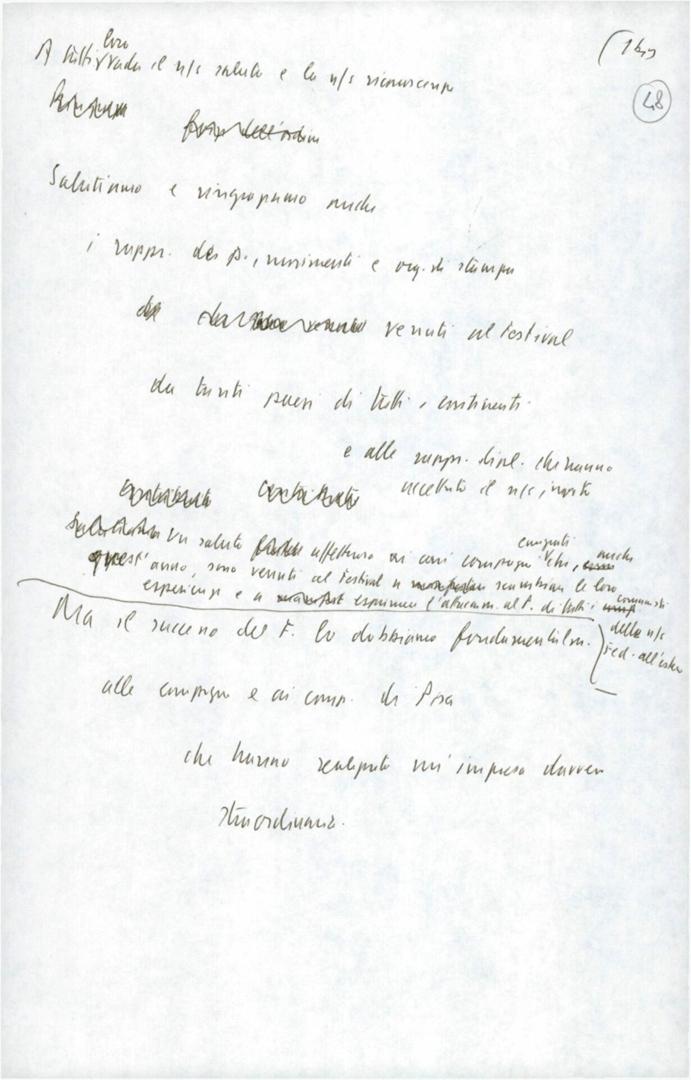 (1 4)
48
loro
A tutti vada il n/s saluto e la n/s riconoscenza
forze dell'ordine
Salutiamo e ringraziamo anche
i rappr. dei p., movimenti e org. di stampa
venuti al Festival
da tanti paesi di tutti i continenti.
e alle rappr. dipl. che hanno
accettato il n/s invito
emigrati
Un saluto affettuoso ai cari compagni che, anche
quest'anno, sono venuti al Festival a scambiare le loro
esperienze e a esprimere l'attaccam. al P. di tutti i comunisti
della n/s
Fed. all'estero
Ma il successo del F. lo dobbiamo fondamentalm.
alle compagne e ai comp. di Pisa
che hanno realizzato un'impresa davvero
straordinaria.